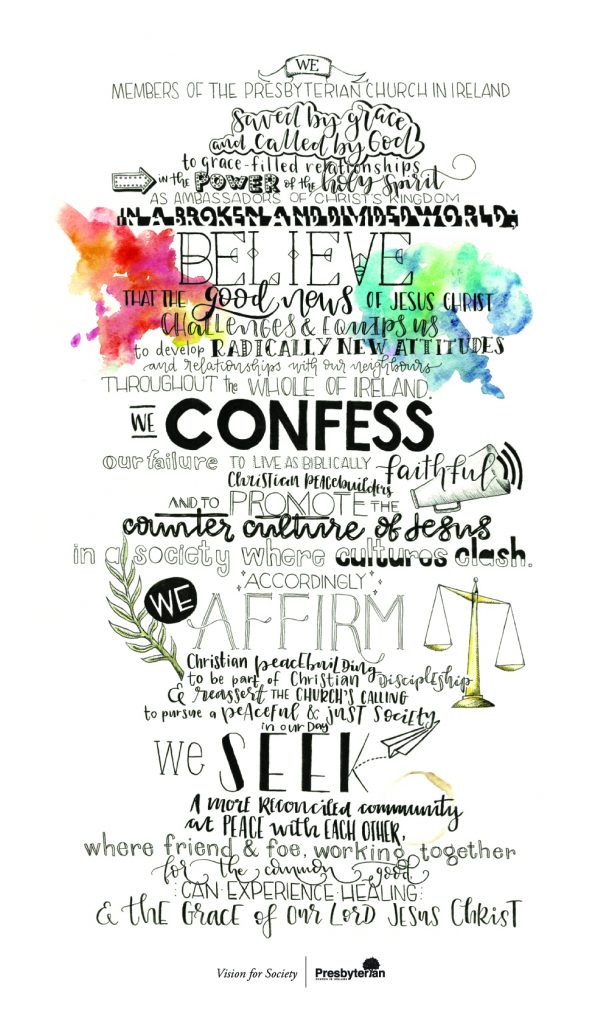 WE
MEMBERS OF THE PRESBYTERIAN CHURCH IN IRELAND
saved by grace
and called by God
to grace-filled relationships
in the POWER of the holy spirit
AS AMBASSADORS OF CHRIST'S KINGDOM
IN A BROKEN AND DIVIDED WORLD;
BELIEVE
THAT THE good news OF JESUS CHRIST
CHALLENGES & EQUIPS US
to develop RADICALLY NEW ATTITUDES
and relationships with our neighbours
THROUGHOUT the WHOLE OF IRELAND.
WE CONFESS
our failure TO LIVE AS BIBLICALLY faithful
CHRISTIAN PEACEBUILDERS
AND TO PROMOTE THE
counter culture of Jesus
in a society where cultures clash.
ACCORDINGLY
WE AFFIRM
Christian peacebuilding
to be part of Christian DISCIPLESHIP
& reassert THE CHURCH'S CALLING
to pursue a peaceful & just society
in our day
We SEEK
A more reconciled community
at PEACE with EACH OTHER,
where friend & foe, working together
for the common good,
CAN EXPERIENCE HEALING
& the Grace of our Lord Jesus Christ
Vision for Society
Presbyterian
CHURCH IN IRELAND